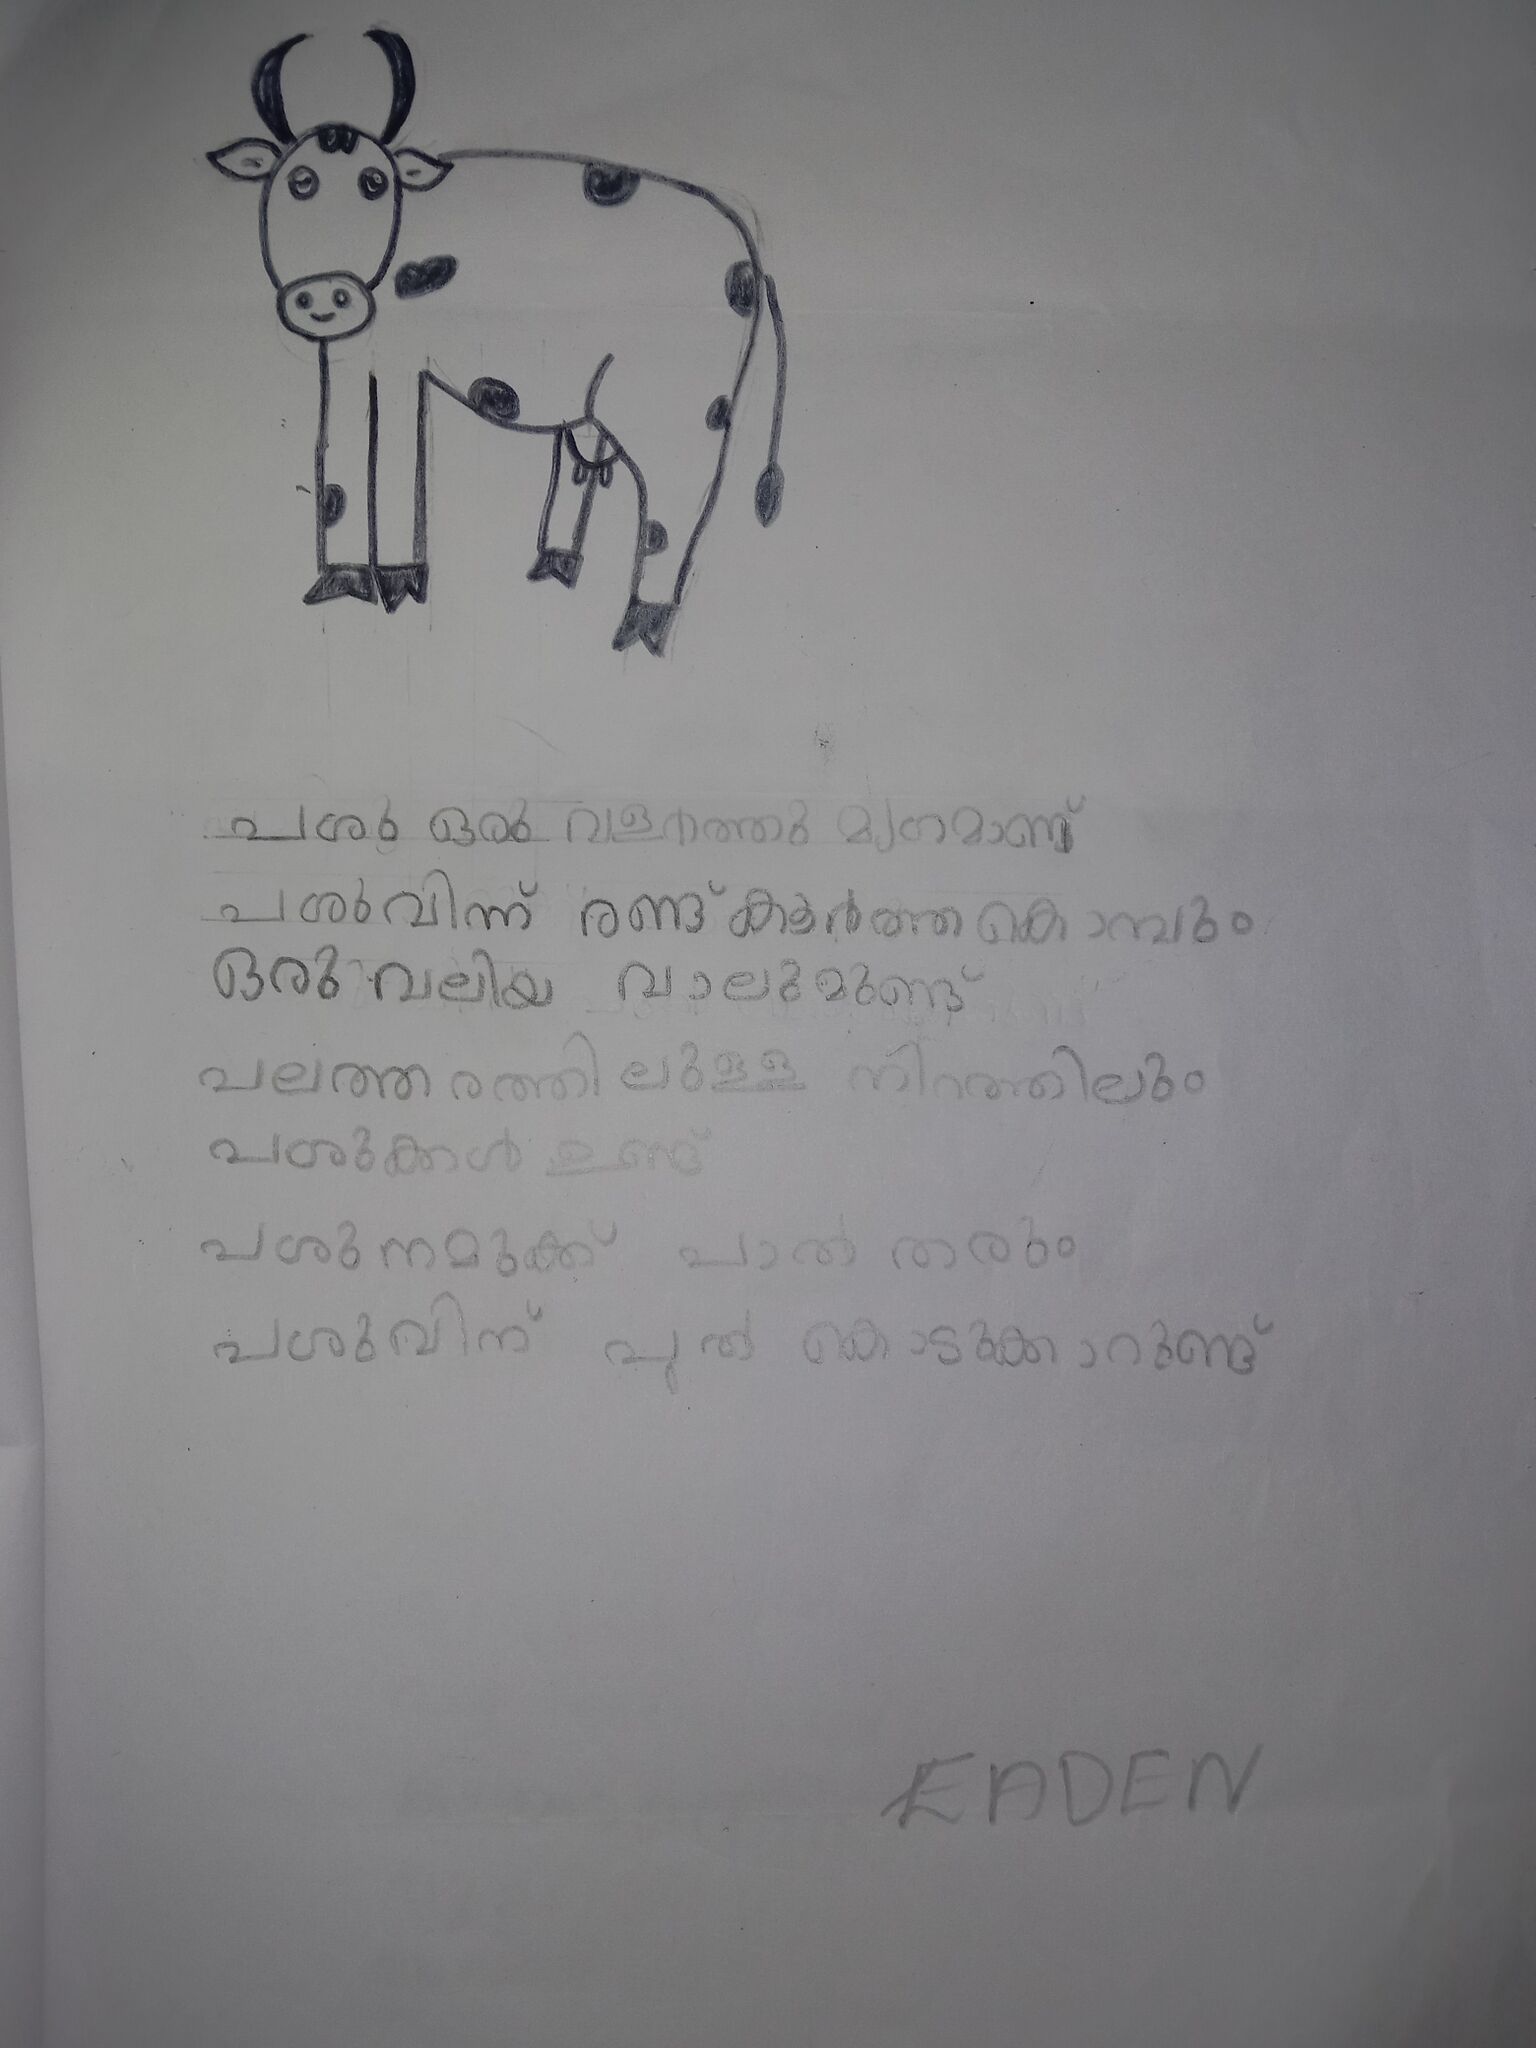 പശു ഒരു വളർത്തു മൃഗമാണ്
പശുവിന്ന് രണ്ട് കൂർത്ത കൊമ്പും
ഒരു വലിയ വാലുമുണ്ട്
പലത്തരത്തിലുള്ള നിറത്തിലും
പശുക്കൾ ഉണ്ട്
പശു നമുക്ക് പാൽ തരും
പശുവിന് പുൽ കൊടുക്കാറുണ്ട്
EADEN